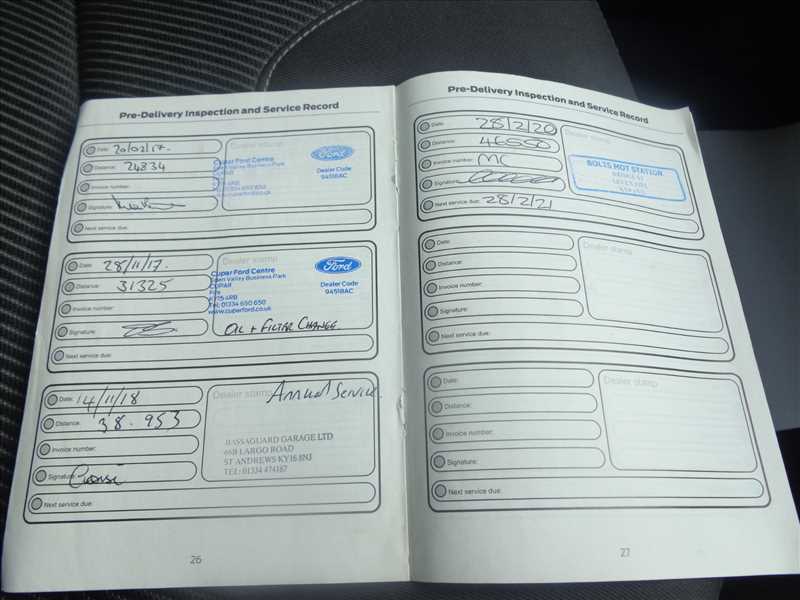 Pre-Delivery Inspection and Service Record
Date: 20/02/17.
Distance: 24834
Invoice number:
Signature:
Next service due:
Dealer stamp
Cupar Ford Centre
Eden Valley Business Park
CUPAR
KY15 4RB
Tel: 01334 650 650
www.cuperford.co.uk
Ford
Dealer Code
94518AC
Date: 28/11/17.
Distance: 31325
Invoice number:
Signature:
Next service due:
Dealer stamp
Cupar Ford Centre
Eden Valley Business Park
CUPAR
Fife
KY15 4RB
Tel: 01334 650 650
www.cuperford.co.uk
Ford
Dealer Code
94518AC
OIL + FILTER CHANGE.
Date: 14/11/18
Distance: 38.953
Invoice number:
Signature:
Next service due:
Dealer stamp
Annual Service.
BASSAGUARD GARAGE LTD
66B LARGO ROAD
ST ANDREWS KY16 8NJ
TEL: 01334 474187
26
Pre-Delivery Inspection and Service Record
Date: 28/2/20
Distance: 46050
Invoice number: MC
Signature:
Next service due: 28/2/21
Dealer stamp
BOLTS MOT STATION
Date:
Distance:
Invoice number:
Signature:
Next service due:
Dealer stamp
Date:
Distance:
Invoice number:
Signature:
Next service due:
Dealer stamp
27